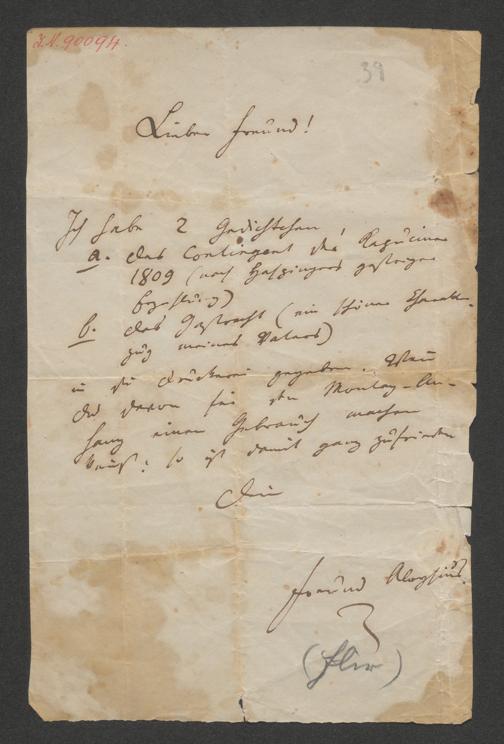 I.N. 90094.
39
Lieber Freund!
Ich habe 2 Gedichtchen
a. das Contingent der Kapuciner
1809 (nach Haspingers
b. das Gastrecht (ein schöner Charakter-
zug meines Vaters)
in die Druckerei gegeben. Wenn
du davon für den Montag-An-
hang einen Gebrauch machen
kannst: so ist damit ganz zufrieden
Dein
Freund Aloysius.
(Flir)